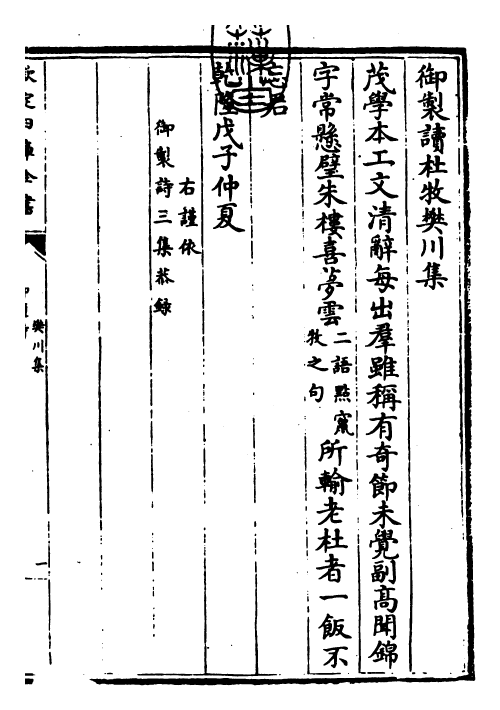 御製讀杜牧樊川集
茂學本工文清辭每出羣雖稱有奇節未覺副高聞錦
字常懸壁朱樓喜夢雲二語點竄牧之句所輸老杜者一飯不
忘君
乾隆戊子仲夏
右謹依
御製詩三集恭錄
欽定四庫全書
樊川集
一